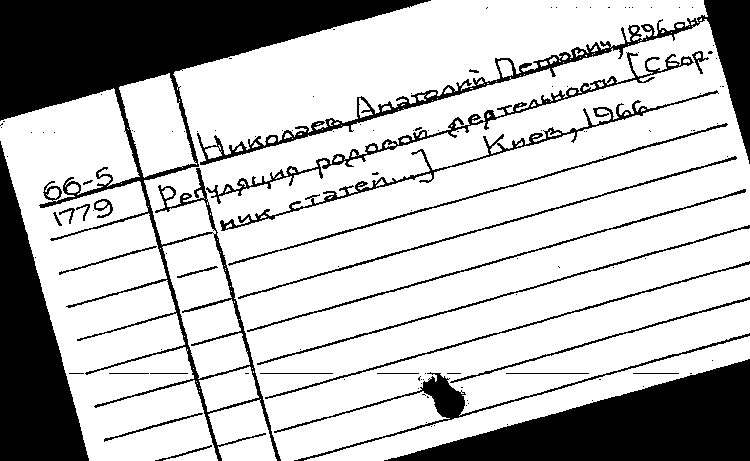 66-5
1779
Николаев, Анатолий Петрович, 1896, он-
Регуляция родовой деятельности [Сбор-
ник статей...] Киев, 1966